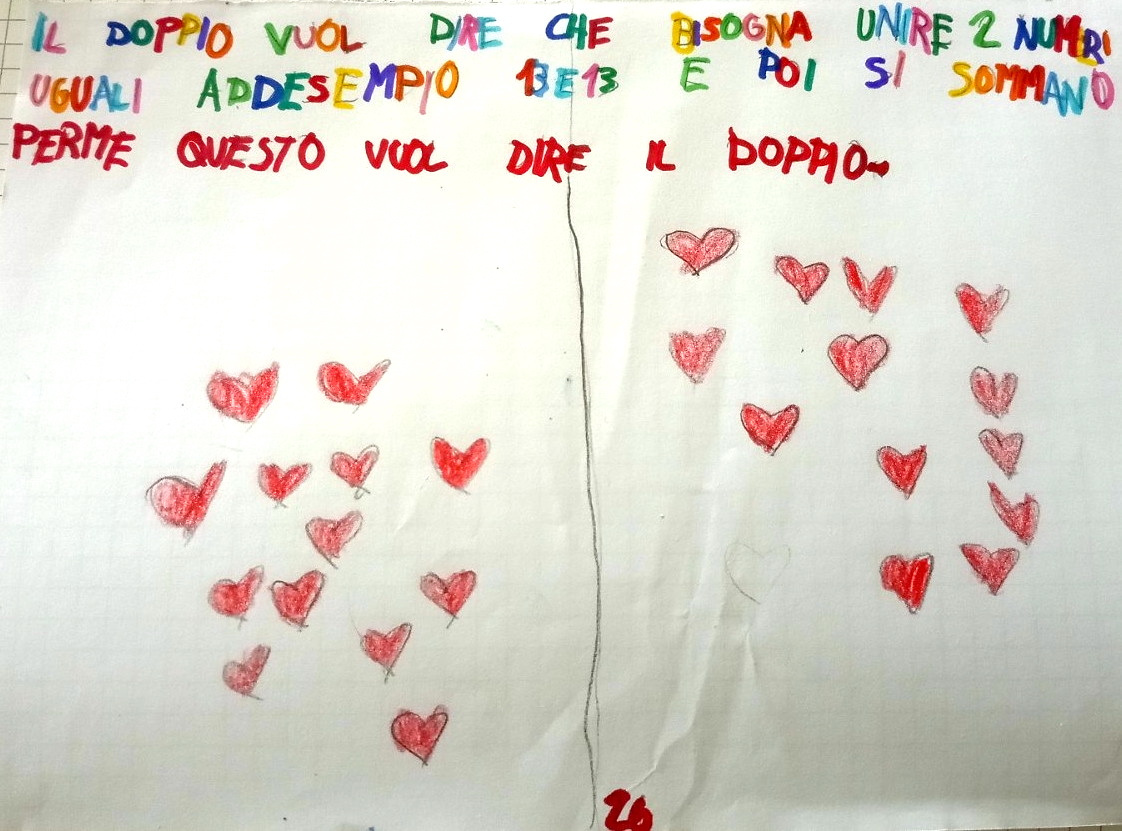 IL DOPPIO VUOL DIRE CHE BISOGNA UNIRE 2 NUMERI
UGUALI ADDESEMPIO 13 E 13 E POI SI SOMMANO
PERME QUESTO VUOL DIRE IL DOPPIO
26